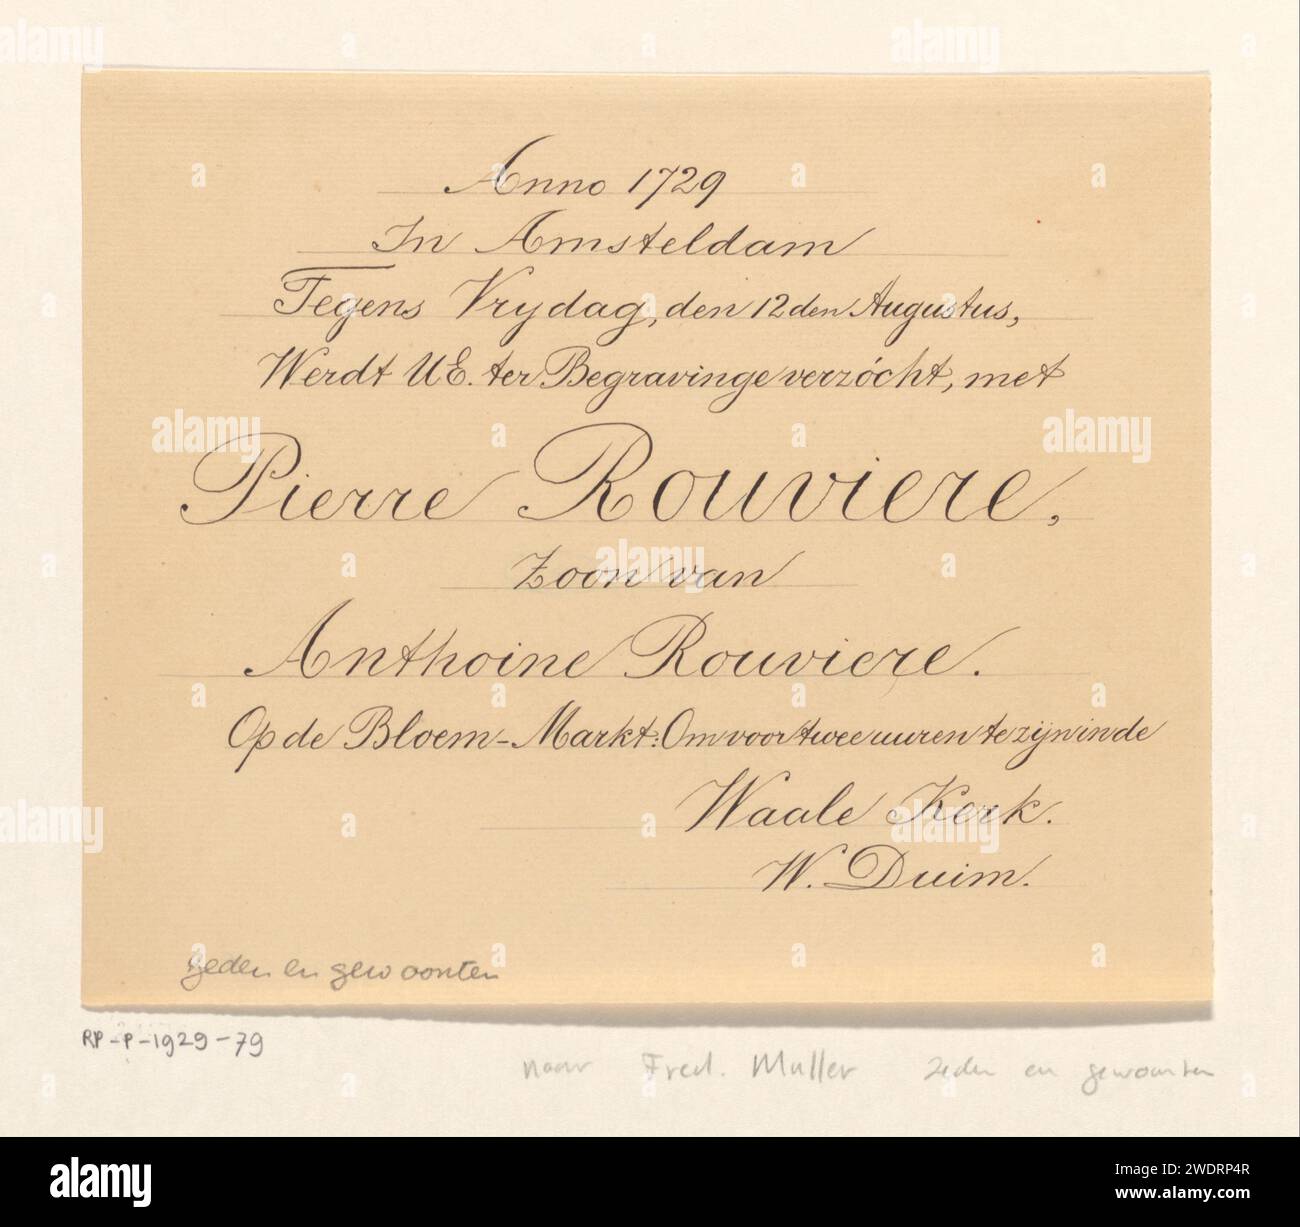 Anno 1729
In Amsteldam
Tegens Vrydag, den 12den Augustus,
Werdt UE. ter Begravinge verzócht, met
Pierre Rouviere,
Zoon van
Anthoine Rouviere.
Op de Bloem-Markt: Om voor twee uuren te zijn in de
Waale Kerk.
W. Duim.
zeden en gewoonten
RP-P-1929-79
naar Fred. Muller zeden en gewoonten
alamy
Image ID: 2WDRP4R
www.alamy.com